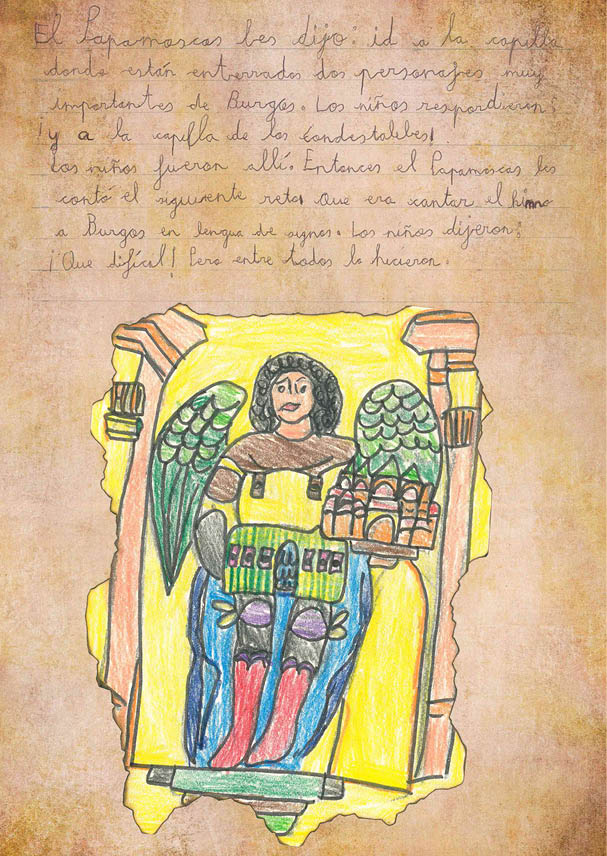 El Papamoscas les dijo: id a la capilla
donde están enterrados dos personajes muy
importantes de Burgos. Los niños respondieron:
¡y a la capilla de los Condestables!
Los niños fueron allí. Entonces el Papamoscas les
contó el siguiente reto: Que era cantar el himno
a Burgos en lengua de signos. Los niños dijeron:
¡Que difícil! Pero entre todos lo hicieron.